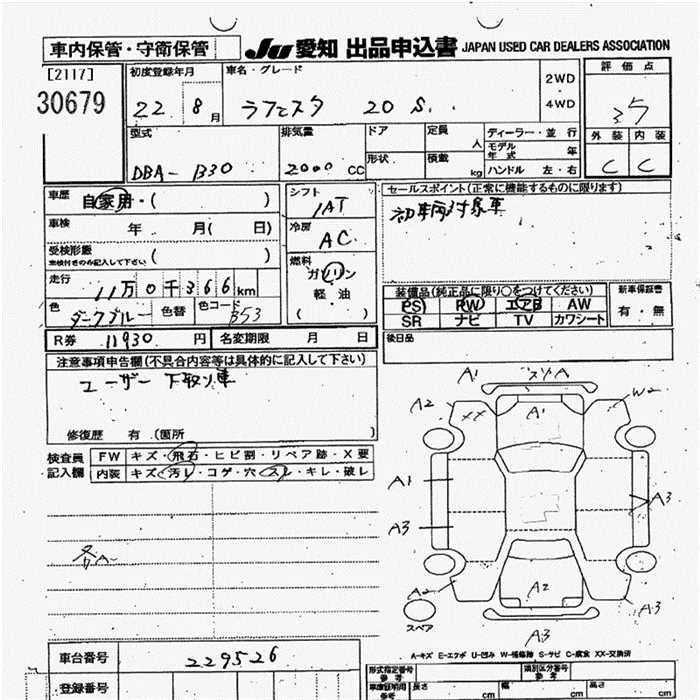 車内保管・守衛保管
JU 愛知 出品申込書 JAPAN USED CAR DEALERS ASSOCIATION
[2117]
30679
初度登録年月
22 8 月
車名・グレード
ラフェスタ 20 S.
2WD
4WD
評価点
3.5
外装 内装
C C
型式
DBA-B30
排気量
2000 CC
ドア
形状
定員
人
積載
kg
ディーラー・並行
モデル年式 年
ハンドル 左・右
車歴
自家用・( )
車検
年 月( 日)
受検形態
車検付きのみ記入して下さい ( )
走行
11万0千366km
色
ダークブルー
色替
色コード
B53
シフト
IAT
冷房
AC
燃料
ガソリン
軽油
( )
セールスポイント(正常に機能するものに限ります)
初車両対象車
装備品(純正品に限り○をつけてください)
PS PW エアB AW
SR ナビ TV カワシート
新車保証書
有・無
後日品
R券 11930 円
名変期限 月 日
注意事項申告欄(不具合内容等は具体的に記入して下さい)
ユーザー下取り車
修復歴 有 (箇所 )
検査員記入欄
FW キズ・飛石・ヒビ割・リペア跡・X要
内装 キズ・汚レ・コゲ・穴・スレ・キレ・破レ
各A
A1
スリA
A2
XX
A1
W2
A1
A3
A3
A2
A2
A3
A3
スペア
A-キズ E-エクボ U-凹み W-補修跡 S-サビ C-腐食 XX-交換済
車台番号
229526
登録番号
形式指定番号
参考
類別区分番号
参考
車庫証明用
参考
長さ cm
幅 cm
高さ cm